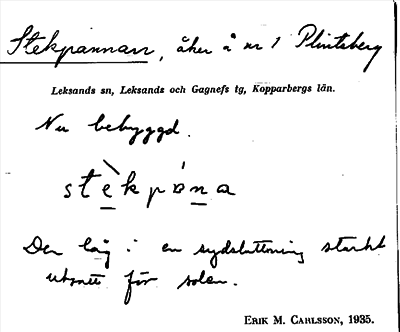 Stekpannan, åker å nr 1 Plintsberg
Leksands sn, Leksands och Gagnefs tg, Kopparbergs län.
Nu bebyggd.
stèkpána
Den låg i en sydsluttning starkt
utsatt för solen.
ERIK M. CARLSSON, 1935.